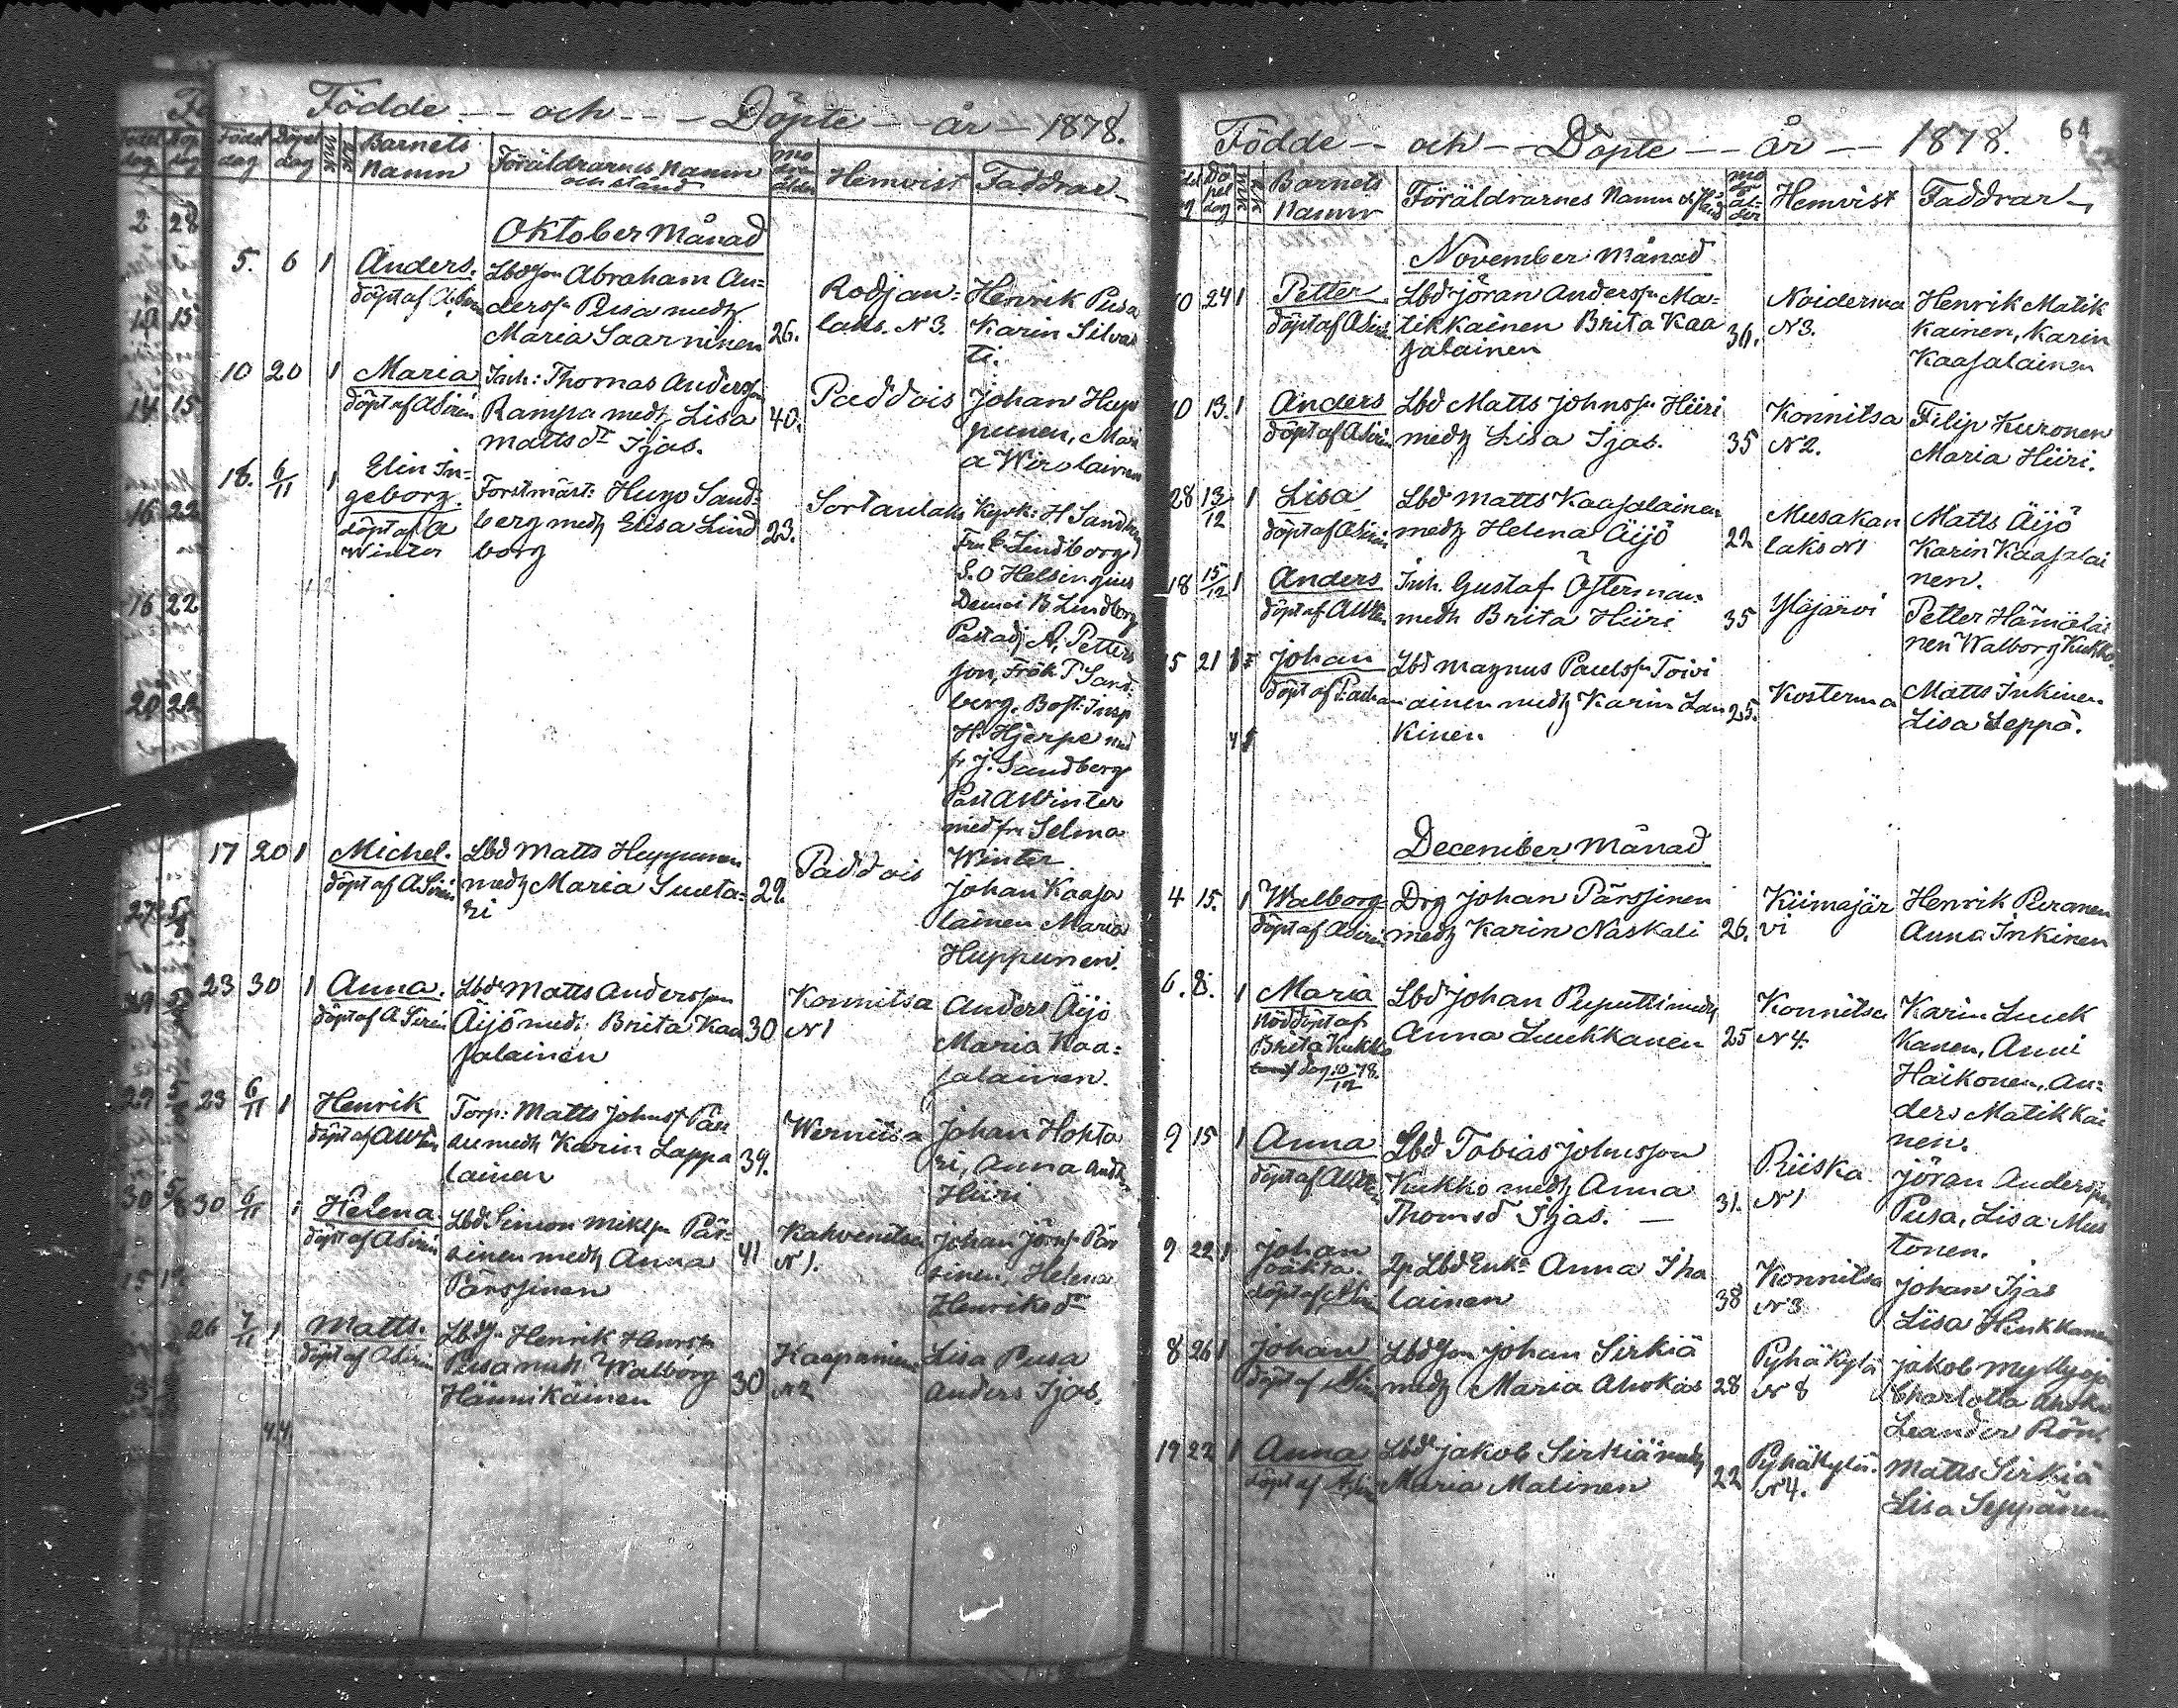 Födde - och - Döpte - år - 1878.
Född dag
Döpel dag
Barnets Namn
Föräldrarnes Namn och stånd
moders ålder
Hemvist
Faddrar
Oktober Månad
5. 6 1 Anders.
döpt af A Siren
Lbdson Abraham An=
derss. Pusa medh
Maria Saarninen
26.
Rodjan=
laks. N3.
Henrik Pusa
Karin Silvas
ti.
10 20 1 Maria
döpt af A Sirén
Inh: Thomas Anderss
Rampa medh Lisa
Matts dr Ijas.
40.
Paddois
Johan Hup
punen, Mari
a Wirolainen
18. 6/11 1 Elin In=
geborg.
döpt af A
Winter
Forstmäst: Hugo Sand=
berg medh Elisa Lind
borg
23.
Sortanlaks
Kyrk: H Sandberg
Fru C Lindborg
S. O Helsingius
Demoi B Lindborg
Past adj A. Petters
son, Frök T Sand=
berg. Bost: Insp
H. Hjerpe med
fr J. Sandberg
Past A Winter
med fru Selma
Winter
17 20 1 Michel.
döpt af A Sirén
Lbd Matts Huppunen
medh Maria Suuta=
ri
29.
Paddois
Johan Kaaja
lainen Maria
Huppunen.
23 30 1 Anna.
döpt af A Sirén
Lbdr Matts Andersson
Äijö medh Brita Kaa
jalainen
30
Konnitsa
N1
Anders Äijö
Maria Kaa=
jalainen.
23 6/11 1 Henrik
döpt af A Winter
Torp: Matts Johnss Pau
su medh Karin Lappa
lainen
39.
Wernitsa
Johan Hohta
ri, Anna Andr
Hiiri
30 6/11 1 Helena.
döpt af A Sirén
Lbdr Simon Mikss Pär=
sinen medh Anna
Pärssinen
41
Kahvenitsa
N1.
Johan Jörns Pär
sinen, Helena
Henriks dr
26 7/11 1 Matts.
döpt af A Sirén
Lbds. Henrik Henriks
Pusa medh Walborg
Hännikäinen
30
Haapaniemi
N2
Lisa Pusa
Anders Ijas.
4.4.
Födde - och - Döpte - år - 1878.
64
Döpel dag
Barnets Namn
Föräldrarnes Namn och stånd
moders ålder
Hemvist
Faddrar
November Månad
10 24 1 Petter
döpt af A Sirén
Lbdr Jöran Anderss. Ma=
tikkainen Brita Kaa
jalainen
36.
Noiderma
N3.
Henrik Matik
kainen, Karin
Kaajalainen
10 13. 1 Anders
döpt af A Sirén
Lbd Matts Johnss. Hiiri
medh Lisa Ijas.
35
Konnitsa
N2.
Filip Kuronen
Maria Hiiri.
28 13/12 1 Lisa
döpt af A Sirén
Lbd Matts Kaajalainen
medh Helena Äijö
22
Musakan
laks N1
Matts Äijö
Karin Kaajalai
nen.
18 15/12 1 Anders
döpt af A Winter
Inh. Gustaf Österman
medh Brita Hiiri
35
Yläjärvi
Petter Hämäläi
nen Walborg Kukko
5 21 Johan
döpt af
Lbd Magnus Paulss. Toivi
ainen medh Karin Lan
kinen
25.
Kosterma
Matts Inkinen
Lisa Leppä.
4 1
December Månad
4 15. 1 Walborg
döpt af A Sirén
Drg Johan Pärssinen
medh Karin Naskali
26.
Kiimajär
vi
Henrik Puranen
Anna Inkinen
6. 8. 1 Maria
Nöddöpt af
Brita Kukko
dag 10/12 78.
Lbdr Johan Puputti medh
Anna Luukkanen
25
Konnitsa
N4.
Karin Luuk
kanen, Anni
Haikonen, An=
ders Matikkai
nen.
9 15 1 Anna
döpt af A Winter
Lbd Tobias Johnsson
Kukko medh Anna
Thoms dr Ijas.
31.
Riiska
N1
Jöran Andersson
Pusa, Lisa Mus
tonen.
9 22 1 Johan
oäkta.
döpt af A Sirén
Lp Lbd Enka Anna Iha
lainen
38
Konnitsa
N3
Johan Ijas
Lisa Hinkkanen
8 26 1 Johan
döpt af A Sirén
Lbdson Johan Sirkiä
medh Maria Ahokas
28
Pyhäkylä
N8
Jakob Myllyoja
Charlotta Ahokas
Leander Rön.
19 22 1 Anna
döpt af A Sirén
Lbdr Jakob Sirkiä medh
Maria Malinen
22
Pyhäkylä.
N4.
Matts Sirkiä
Lisa Seppänen